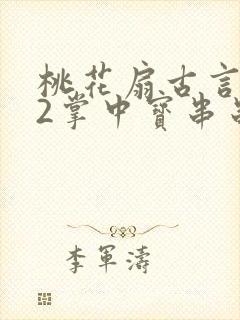 桃花扇古言
2掌中寳串
李軍濤